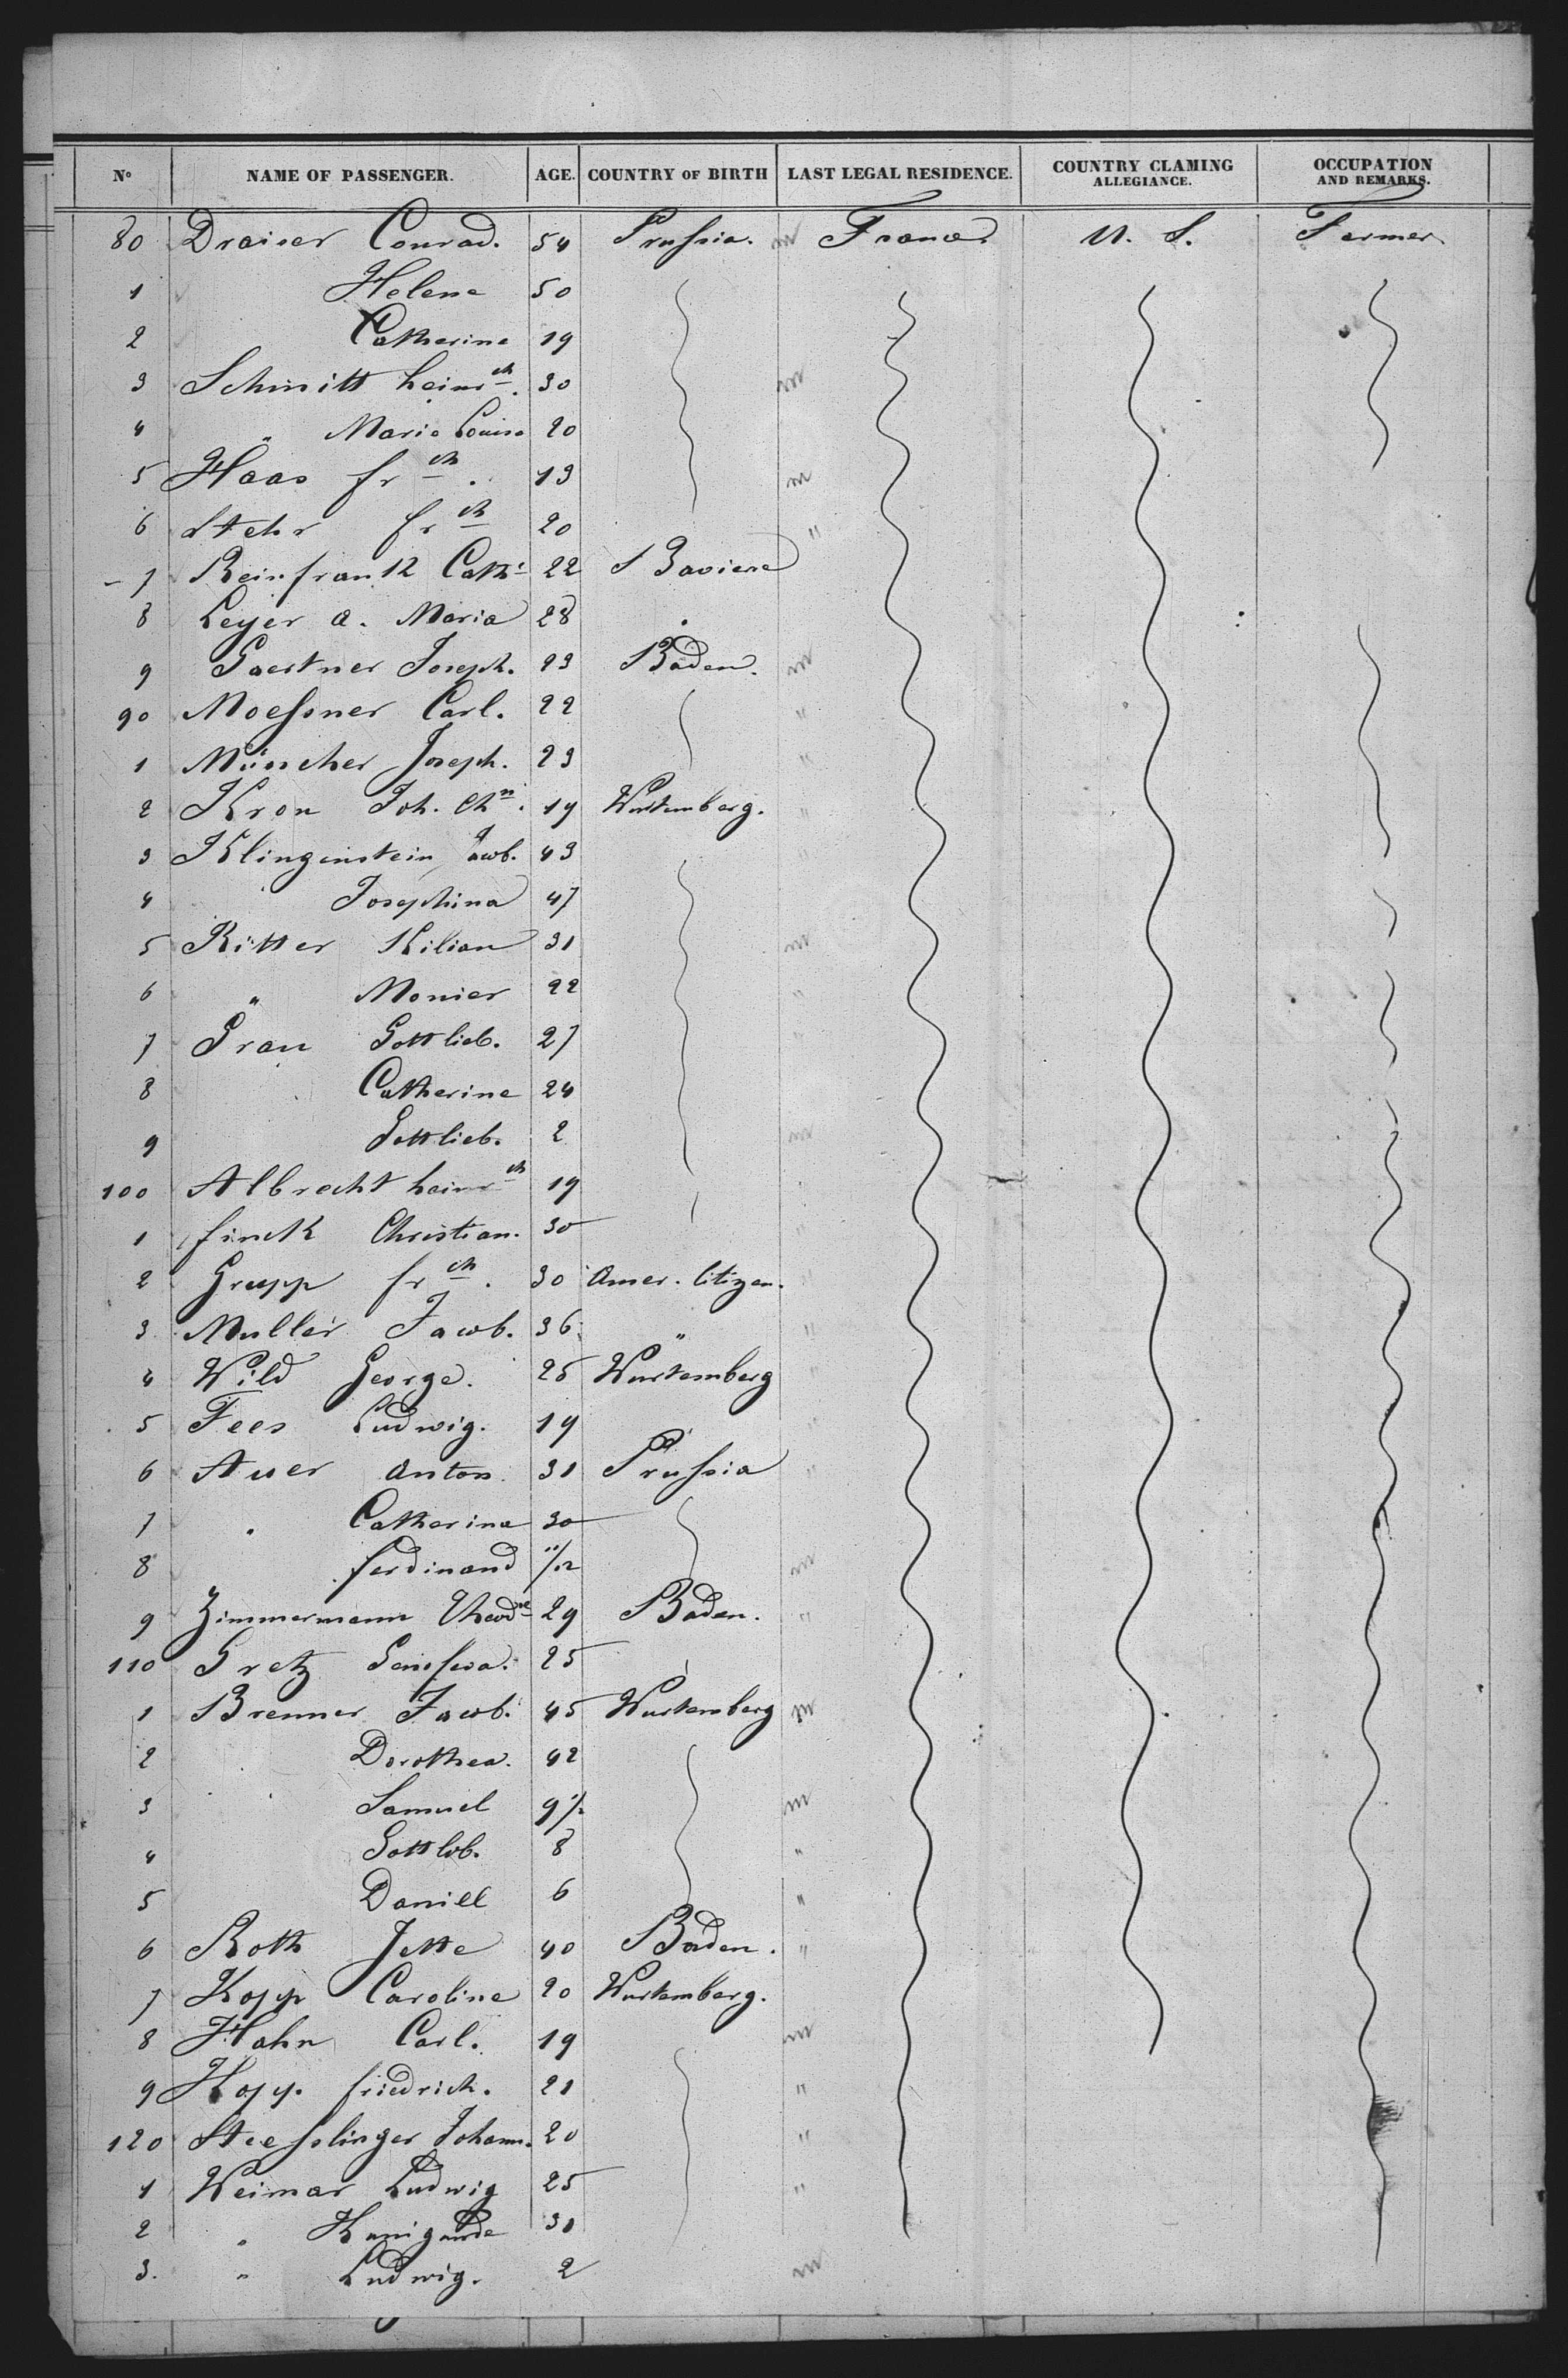 No NAME OF PASSENGER. AGE. COUNTRY OF BIRTH LAST LEGAL RESIDENCE. COUNTRY CLAMING ALLEGIANCE. OCCUPATION AND REMARKS.
80 Draiser Conrad. 54 Prussia. m France. U. S. Farmer
1 Helene 50
2 Catherine 19
3 Schmitt heinrch. 30 m
4 " Marie Louise 20
5 Haas frch. 13 m
6 Stehr frch 20 "
7 Reinfrank Cath. 22 Baviere
8 Leyer a. Maria 28
9 Gaertner Joseph. 23 Baden. m
90 Moessner Carl. 22 "
1 Müncher Joseph. 23 "
2 Kron Joh. Chn. 19 Wurtemberg. "
3 Klingenstein Jacob. 43 "
4 Josephina 47
5 Ritter Kilian 31 m
6 " Monier 22 "
7 Grau Gottlieb. 27 "
8 Catherine 24
9 Gottlieb. 2 m
100 Albrecht heinrch 19
1 finck Christian. 30 "
2 Grupp frch. 30 Amer. Citizen. "
3 Muller Jacob. 36 " "
4 Wild George. 25 Wurtemberg "
5 Fees Ludwig. 19 "
6 Auer Anton 31 Prussia "
7 " Catherina 30
8 ferdinand 11/12 m
9 Zimmermann 29 Baden. "
110 Gretz 25
1 Brenner Jacob. 45 Wurtemberg m
2 Dorothea. 42
3 Samuel 9 1/2 m
4 Gottlob. 8 "
5 Daniel 6 "
6 Roth Jette 40 Baden. "
7 Kopp Caroline 20 Wurtemberg.
8 Hahn Carl. 19 m
9 Kopp. friedrich. 21 "
120 Stoesslinger Johann. 20 "
1 Weimar Ludwig 25 "
2 " Kunigunde 31
3. " Ludwig. 2 m